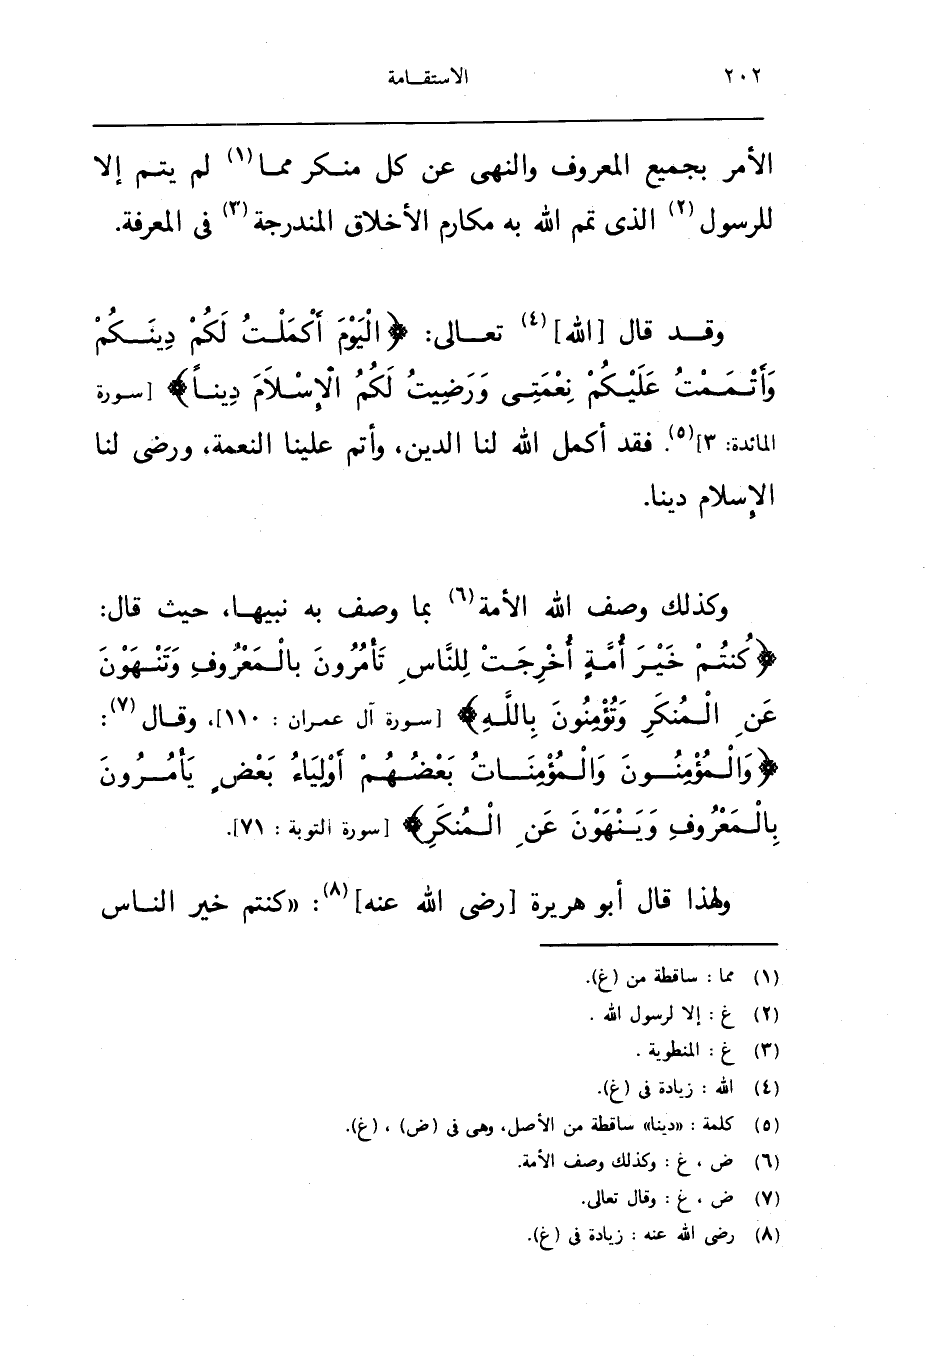 ٢٠٢ الاستقامة
الأمر بجميع المعروف والنهى عن كل منكر مما(١) لم يتم إلا
للرسول(٢) الذى تمم الله به مكارم الأخلاق المندرجة(٣) فى المعرفة.
وقد قال [الله](٤) تعالى: ﴿الْيَوْمَ أَكْمَلْتُ لَكُمْ دِينَكُمْ
وَأَتْمَمْتُ عَلَيْكُمْ نِعْمَتِى وَرَضِيتُ لَكُمُ الْإِسْلَامَ دِيناً﴾ [سورة
المائدة: ٣](٥). فقد أكمل الله لنا الدين، وأتم علينا النعمة، ورضى لنا
الإسلام دينا.
وكذلك وصف الله الأمة(٦) بما وصف به نبيها، حيث قال:
﴿كُنتُمْ خَيْرَ أُمَّةٍ أُخْرِجَتْ لِلنَّاسِ تَأْمُرُونَ بالْمَعْرُوفِ وَتَنْهَوْنَ
عَنِ الْمُنكَرِ وَتُؤْمِنُونَ بِاللَّهِ﴾ [سورة آل عمران : ١١٠]، وقال(٧):
﴿وَالْمُؤْمِنُونَ وَالْمُؤْمِنَاتُ بَعْضُهُمْ أَوْلِيَاءُ بَعْضٍ يَأْمُرُونَ
بِالْمَعْرُوفِ وَيَنْهَوْنَ عَنِ الْمُنكَرِ﴾ [سورة التوبة : ٧١].
ولهذا قال أبو هريرة [رضى الله عنه](٨): «كنتم خير الناس
(١) مما : ساقطة من (غ).
(٢) غ : إلا لرسول الله .
(٣) غ : المنطوية .
(٤) الله : زيادة فى (غ).
(٥) كلمة : «دينا» ساقطة من الأصل، وهى فى (ض) ، (غ).
(٦) ض ، غ : وكذلك وصف الأمة.
(٧) ض ، غ : وقال تعالى.
(٨) رضى الله عنه : زيادة فى (غ).